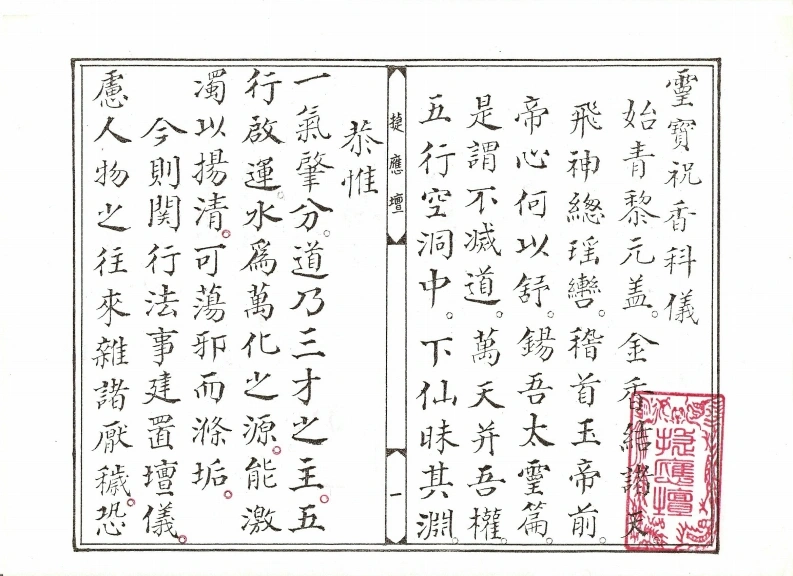 霊寶祝香科儀
始青黎元盖。金香結諸天
飛神總瑶轡。稽首玉帝前。
帝心何以舒。錫吾太霊篇。
是謂不滅道。萬天并吾權。
五行空洞中。下仙昧其淵。
捷應壇
一
恭惟
一氣肇分。道乃三才之主。五
行啟運。水爲萬化之源。能激
濁以揚清。可蕩邪而滌垢。
今則関行法事建置壇儀。
慮人物之往來雜諸厭穢。恐
捷應壇